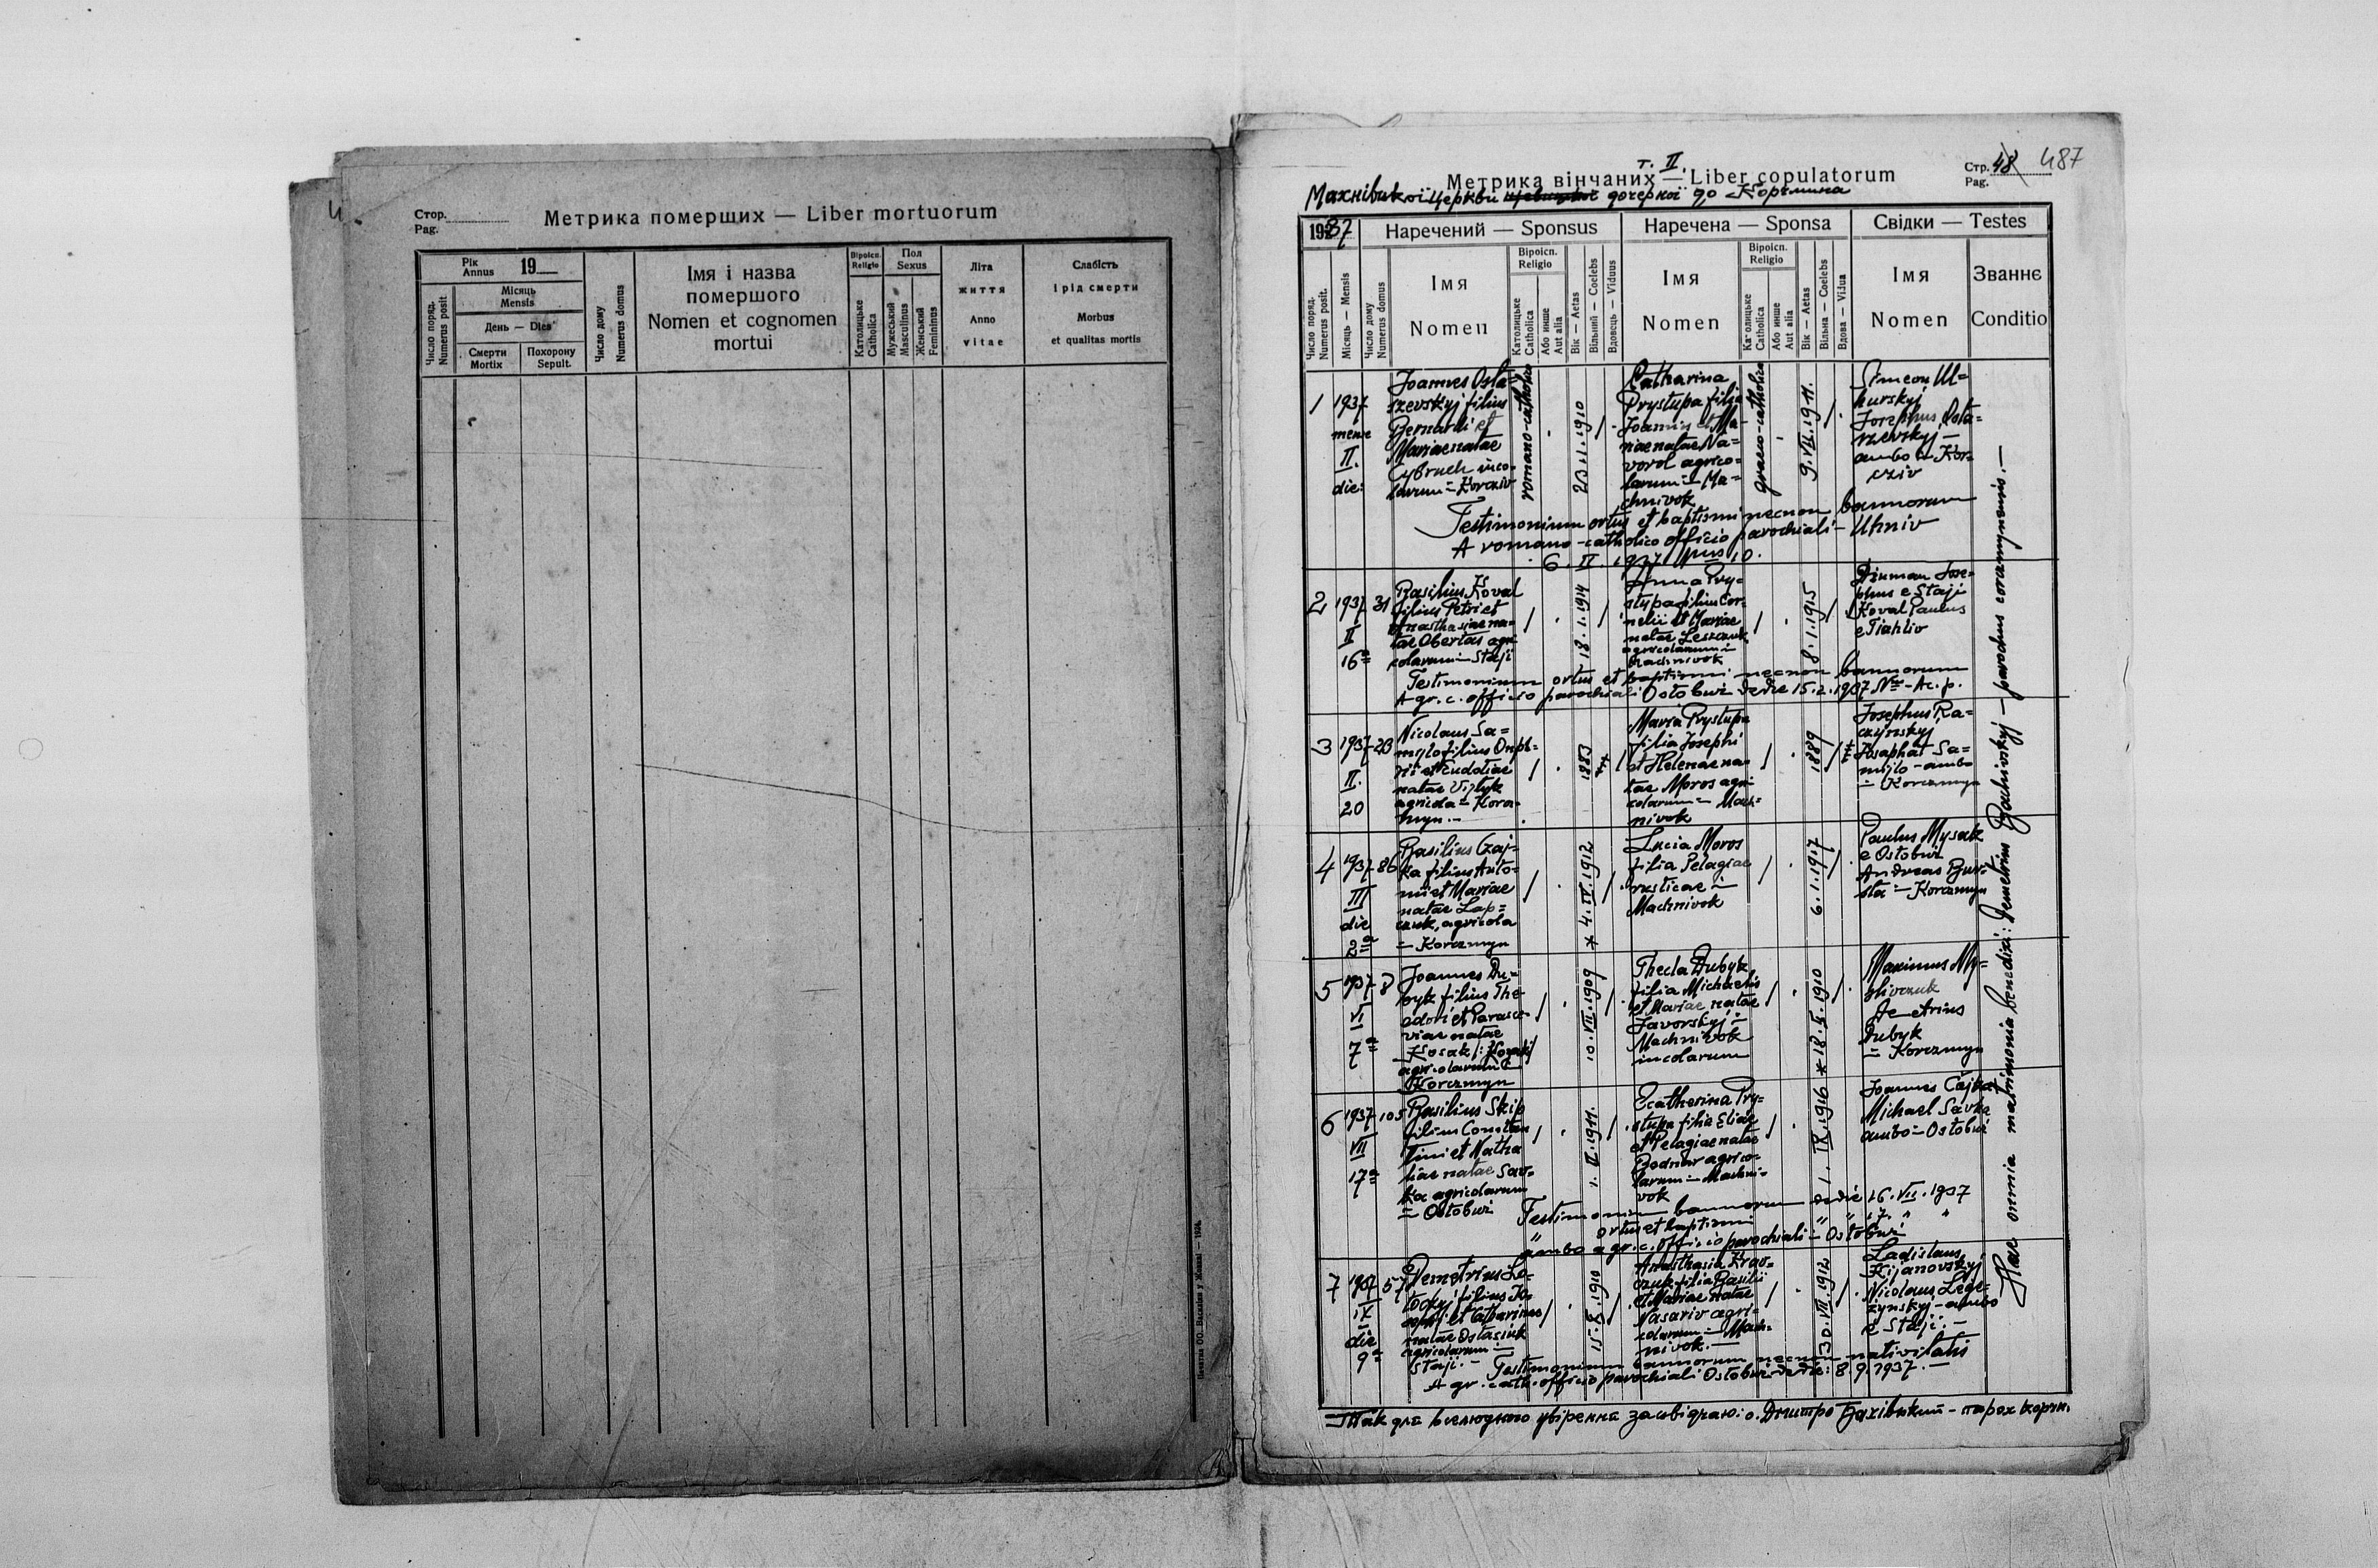 Стор.
Pag.
Метрика померших — Liber mortuorum
Рік
Annus
19
Місяць
Mensis
День — Dies
Смерти
Mortix
Похорону
Sepult.
Число поряд.
Numerus posit
Число дому
Numerus domus
Імя і назва
помершого
Nomen et cognomen
mortui
Віроісп.
Religio
Католицьке
Catholica
Пол
Sexus
Мужеський
Masculinus
Женський
Femininus
Літа
життя
Anno
vitae
Слабість
і рід смерти
Morbus
et qualitas mortis
т. II.
Метрика вінчаних — Liber copulatorum
Стр. 48 487
Pag.
Махнівської церкви дочерної до Корчмина
1937
Наречений — Sponsus
Наречена — Sponsa
Свідки — Testes
Число поряд.
Numerus posit.
Місяць — Mensis
Число дому
Numerus domus
Імя
Nomen
Віроісп.
Religio
Католицьке
Catholica
Або инше
Aut alia
Вік — Aetas
Вільний — Coelebs
Вдовець — Viduus
Імя
Nomen
Віроісп.
Religio
Католицьке
Catholica
Або инше
Aut alia
Вік — Aetas
Вільна — Coelebs
Вдова — Vidua
Імя
Nomen
Званнє
Conditio
1
1937
mense
II.
die:
Joannes Osta-
szevskyj filius
Bernardi et
Mariae natae
Cybruch inco-
larum — Korcziv
romano-catholica
23.1.1910
Catharina
Prystupa filia
Joannis et Ma-
riae natae Na-
vorol agrico-
larum — Ma-
chnivok
graeco-catholica
9.VII.1911.
Simeon Uh-
hurskyj
Josephus Osta-
szevskyj —
ambo — Kor-
cziv
Testimonium ortus et baptismi necnon bannorum
A romano-catholico officio parochiali — Uhniv
6. II. 1937 Nrus 10.
2
1937 31
II
16a
Basilius Koval
filius Petri et
Anasthasiae na-
tae Obertas agri-
colarum — Staji
18.1.1914
Anna Pry-
stupa filia Cor-
nelii et Mariae
natae Leszczuk
agricolarum —
Machnivok
8.1.1915
Jose-
phus e Staji
Koval Paulus
e Tiahliv
Testimonium ortus et baptismi necnon bannorum
A gr. c. officio parochiali Ostobuż de die 15.2.1937
3
1937 23
II.
20
Nicolaus Sa-
mijlo filius
et Eudotiae
natae
agricola — Korcz-
myn —
1883
Maria Prystupa
filia Josephi
et Helenae na-
tae Moros agri-
colarum — Mach-
nivok
1889
Josephus Ra-
czynskyj
Josaphat Sa-
mijlo — ambo
— Korczmyn
4
1937 86
III
die
2a
Basilius Czaj-
ka filius Anto-
nii et Mariae
natae Lap-
czuk, agricola
— Korczmyn
* 4.IV.1912
Lucia Moros
filia Pelagiae
rusticae —
Machnivok
6.1.1917
Paulus Mysak
e Ostobuż
Andreas
— Korczmyn
5
1937 8
VI
7a
Joannes Du-
byk filius The-
odori et Parasce-
viae natae
Kosak
agricolarum —
Korczmyn
10.VII.1909
Thecla Dubyk
filia Michaelis
et Mariae natae
Javorskyj —
Machnivok
incolarum
* 18.X.1910
Maximus My-
Demetrius
Dubyk
— Korczmyn
6
1937 105
VII
17a
Basilius Skip
filius Constan-
tini et Natha-
liae natae Sav-
ka agricolarum
— Ostobuż
1. II. 1911.
Ecatherina Pry-
stupa filia Eliae
et Pelagiae natae
Bodnar agrico-
larum — Machni-
vok
1. IX.1916
Joannes Čajka
Michael Savka
ambo — Ostobuż
Testimonium bannorum de die 16. VII. 1937
" ortus et baptismi " " 17. " "
ambo a gr. c. officio parochiali — Ostobuż
7
1937 57
IX
die
9a
Demetrius Lo-
tockyj filius Jo-
sephi et Catharinae
natae Ostasiuk
agricolarum —
Staji. —
15.X.1910
Anasthasia Krav-
czuk filia Basilii
et Mariae natae
Nasariv agri-
colarum — Mach-
nivok. —
30.VII.1912
Ladislaus
Kijanovskyj
Nicolaus Lege-
żynskyj — ambo
e Staji. —
Testimonium bannorum necnon nativitatis
A gr. cath. officio parochiali Ostobuż de die: 8.9.1937. —
Haec omnia matrimonia benedixi: Demetrius Bachivskyj — parochus corczmynensis. —
Так для вселюдного увірення засвідчаю: о. Дмитро Бахівський — парох корчм.